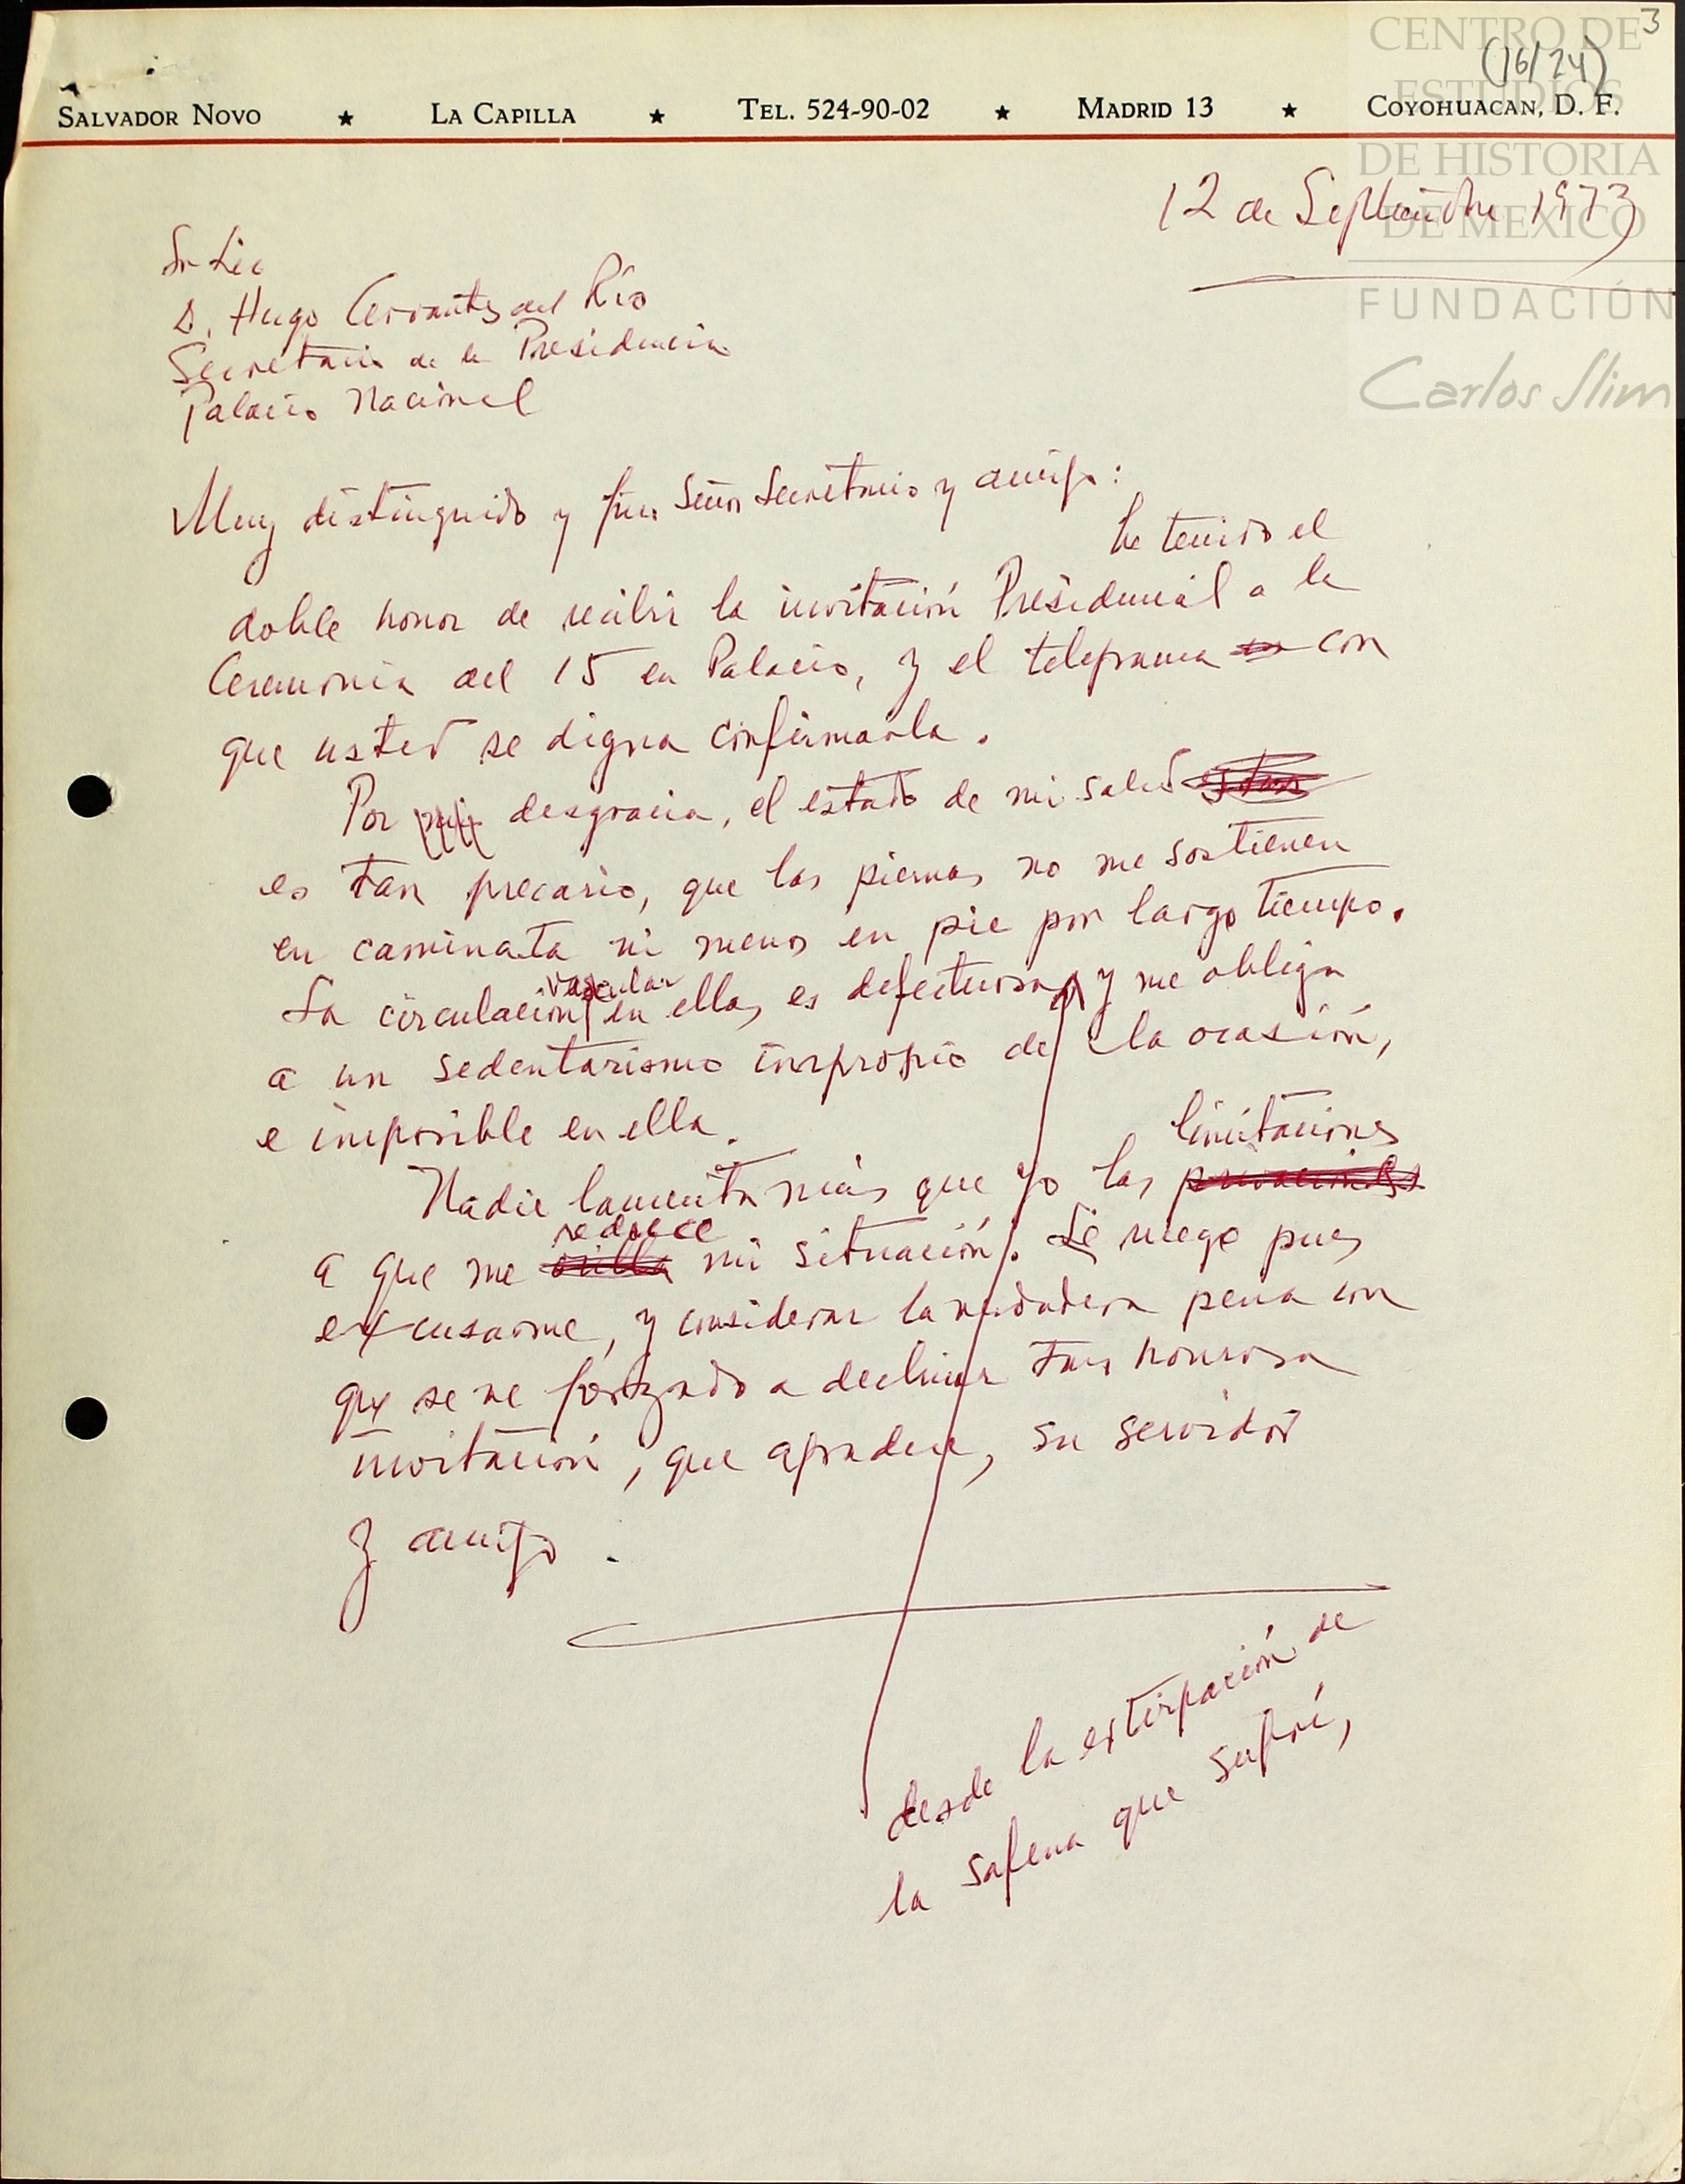 3
(16/24)
CENTRO DE
ESTUDIOS
DE HISTORIA
DE MEXICO
FUNDACIÓN
Carlos Slim
SALVADOR NOVO ★ LA CAPILLA ★ TEL. 524-90-02 ★ MADRID 13 ★ COYOHUACAN, D. F.
12 de Septiembre 1973
Sr Lic
D. Hugo Cervantes del Río
Secretario de la Presidencia
Palacio Nacional
Muy distinguido y fino Señor Secretario y amigo:
he tenido el
doble honor de recibir la invitación Presidencial a la
Ceremonia del 15 en Palacio, y el telegrama con
que usted se digna confirmarla.
Por mi desgracia, el estado de mi salud
es tan precario, que las piernas no me sostienen
en caminata ni menos en pie por largo tiempo.
vascular
La circulación en ellas es defectuosa, y me obliga
a un sedentarismo impropio de la ocasión,
e imposible en ella.
limitaciones
Nadie lamenta más que yo las privaciones
reduce
a que me orilla mi situación. Le ruego pues
excusarme, y considerar la verdadera pena con
que se ve forzado a declinar tan honrosa
invitación, que agradece, su servidor
y amigo.
desde la extirpación de
la safena que sufrí,